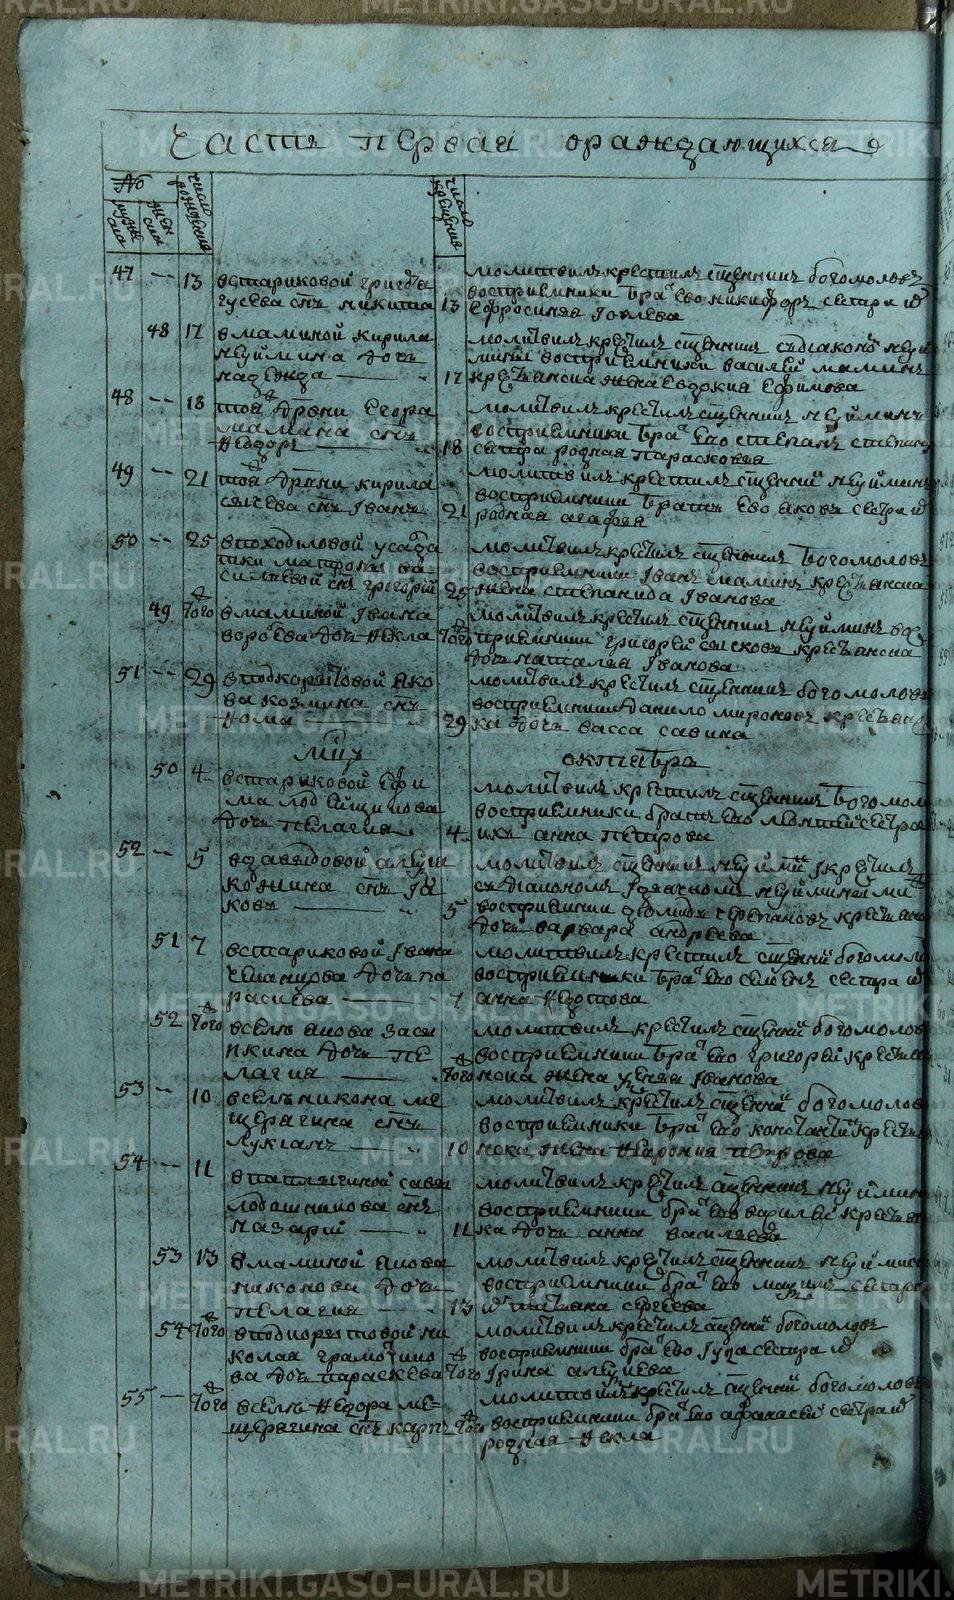 METRIKI.GASO-URAL.RU
Часть первая ораждающихся
№
мужеска
женска
число рождения
число крещения
47 -- 13 встариковой григорья
гусева снъ никита
13
молитвилъ крестилъ сщенникъ богомоловъ
восприемники братъ ево никифоръ сестра
ефросиния Іовлева
48 17 вмаминой кирила
неуймина дочь
надежда
17
молитвилъ крестилъ сщенникъ съдіакономъ
восприемники василей маминъ
крестьянска жена евдокия ефимова
48 -- 18 той дрвни егора
мамина снъ
Ѳедоръ
18
молитвилъ крестилъ сщенникъ неуйминъ
восприемники братъ ево степанъ
сестра родная парасковия
49 -- 21 той дрвни кирила
сысчева снъ Іванъ
21
молитвилъ крестилъ сщенникъ неуйминъ
восприемники братъ ево яковъ сестра
родная агафия
50 -- 25 впоходиловой
матроны васильевой снъ григорій
25
молитвилъ крестилъ сщенникъ богомоловъ
восприемники Іванъ маминъ крестьянска
жена степанида Іванова
49 того вмаминой Івана
воробева дочь Ѳекла
того
молитвилъ крестилъ сщенникъ неуйминъ
восприемники григорей сысковъ крестьянска
дочь наталья Іванова
51 -- 29 вподкорытовой якова
козмина снъ
Ѳома
29
молитвилъ крестилъ сщенникъ богомоловъ
восприемники данило мироновъ
дочь васса савина
мцъ октябрь
50 4 встариковой ефима
лобейщикова
дочь пелагия
4
молитвилъ крестилъ сщенникъ богомоловъ
восприемники братъ ево сестра
ихъ анна петрова
52 -- 5 взавьяловой
кожина снъ
Іаковъ
5
молитвилъ сщенникъ крестилъ
съ діакономъ
восприемники черепановъ
дочь варвара андреева
51 7 встариковой Івана
дочь
расиева
7
молитвилъ крестилъ сщенникъ богомоловъ
восприемники братъ ево семенъ сестра
анна Ѳедотова
52 того вселѣ якова
дочь пелагия
того
молитвилъ крестилъ сщенникъ богомоловъ
восприемники братъ ево григорей
жена Іванова
53 -- 10 вселѣ никона мещерягина снъ
лукіанъ
10
молитвилъ крестилъ сщенникъ богомоловъ
восприемники братъ ево константинъ
жена Ѳеврония петрова
54 -- 11 савы
лобашникова снъ
назарій
11
молитвилъ крестилъ сщенникъ неуйминъ
восприемники братъ ево василей
дочь анна василева
53 13 вмаминой якова
никонова дочь
пелагия
13
молитвилъ крестилъ сщенникъ неуйминъ
восприемники братъ ево сестра
татьяна сергеева
54 того вподкорытовой николая
дочь параскева
того
молитвилъ крестилъ сщенникъ богомоловъ
восприемники братъ ево сестра
Ірина
55 -- того вселѣ Ѳедора мещерягина снъ карпъ
того
молитвилъ крестилъ сщенникъ богомоловъ
восприемники братъ ево афанасей сестра
родная Ѳекла